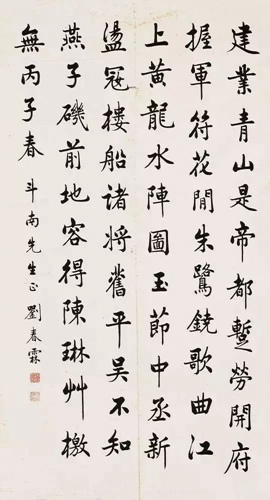 建業青山是帝都蹔勞開府
握軍符花閒朱鷺鐃歌曲江
上黃龍水陣圖玉節中丞新
盪寇樓船諸將舊平吴不知
燕子磯前地容得陳琳艸檄
無丙子春 斗南先生正 劉春霖